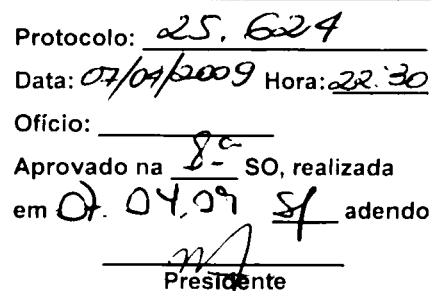 Protocolo: 25.624
Data: 07/04/2009 Hora: 22:30
Ofício:
Aprovado na 8ª SO, realizada
em 07.04.09 S/ adendo
Presidente